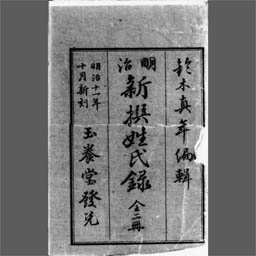 鈴木真年編輯
明治
新撰姓氏錄 全二冊
明治十一年
十月新刻
玉養堂發兌